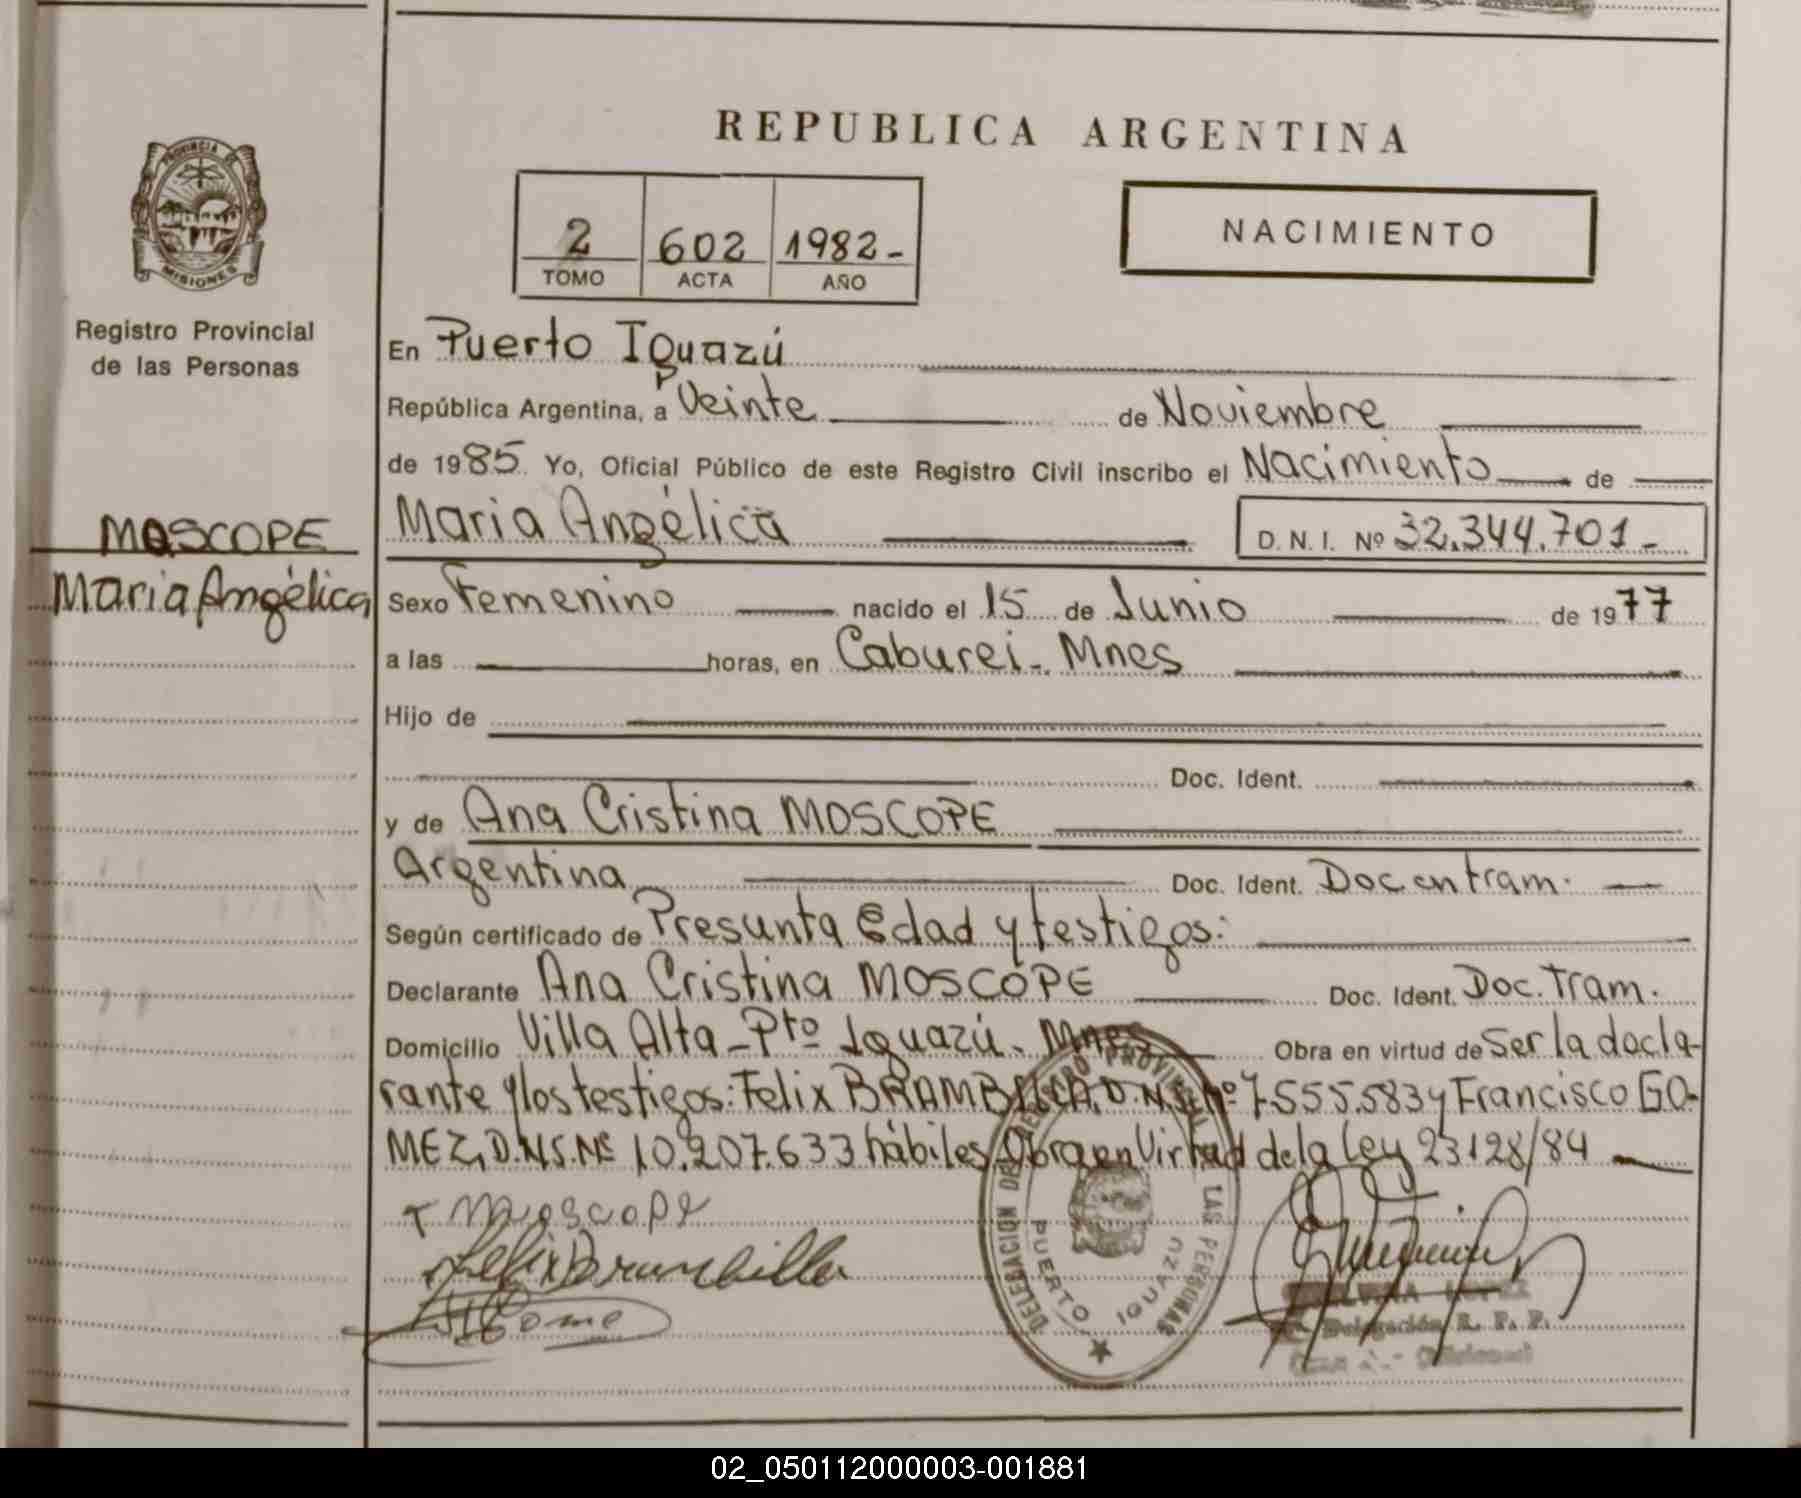 REPUBLICA ARGENTINA
PROVINCIA DE
MISIONES
Registro Provincial
de las Personas
2 602 1982-
TOMO ACTA AÑO
NACIMIENTO
En Puerto Iguazú
República Argentina, a Veinte de Noviembre
de 1985. Yo, Oficial Público de este Registro Civil inscribo el Nacimiento de
MOSCOPE
Maria Angélica
Maria Angélica D. N. I. Nº 32.344.701-
Sexo Femenino nacido el 15 de Junio de 1977
a las horas, en Caburei - Mnes
Hijo de
Doc. Ident.
y de Ana Cristina MOSCOPE
Argentina Doc. Ident. Doc en tram.
Según certificado de Presunta Edad y testigos:
Declarante Ana Cristina MOSCOPE Doc. Ident. Doc. Tram.
Domicilio Villa Alta - Pto Iguazú - Mnes Obra en virtud de Ser la decla-
rante y los testigos: Felix BRAMBILLA, D.N.I. Nº 7.555.583 y Francisco GO-
MEZ, D.N.I. Nº 10.207.633 hábiles, Obra en Virtud de la Ley 23128/84
Moscope
Felix Brambilla
Gome
DELEGACION DEL REGISTRO PROVINCIAL DE LAS PERSONAS
PUERTO IGUAZU
Delegación R. P. P.
02_050112000003-001881